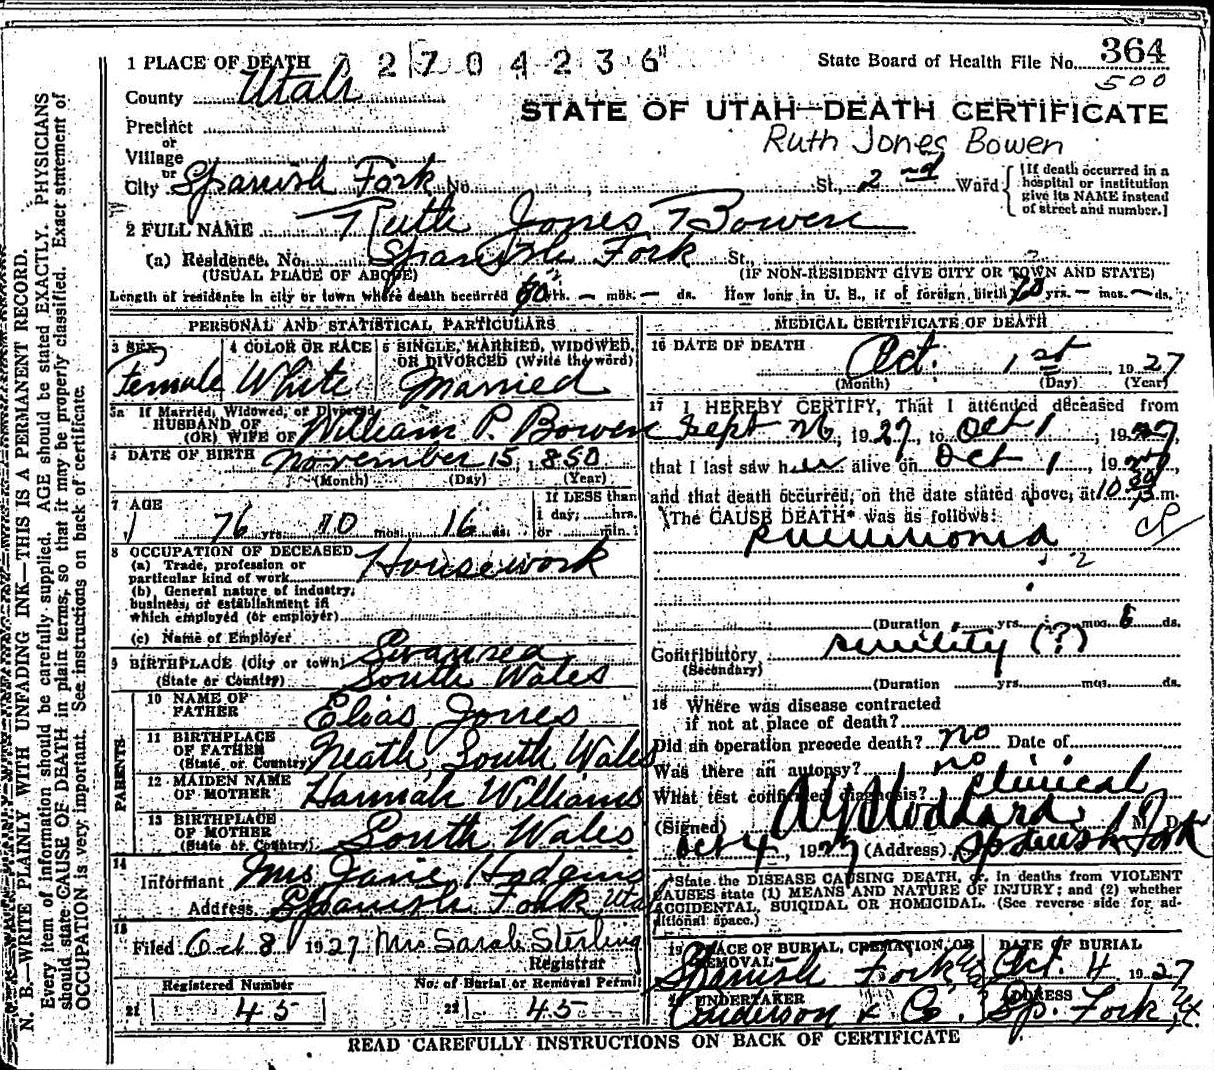 1 PLACE OF DEATH 2 7 0 4 2 3 6
State Board of Health File No. 364
500
County Utah
STATE OF UTAH—DEATH CERTIFICATE
Precinct
or
Village
or
Ruth Jones Bowen
City Spanish Fork No. , St., 2nd Ward
[If death occurred in a
hospital or institution
give its NAME instead
of street and number.]
2 FULL NAME Ruth Jones Bowen
(a) Residence. No. Spanish Fork St.,
(USUAL PLACE OF ABODE) (IF NON-RESIDENT GIVE CITY OR TOWN AND STATE)
Length of residence in city or town where death occurred 60 yrs. — mos. — ds. How long in U. S., if of foreign birth yrs. — mos. — ds.
PERSONAL AND STATISTICAL PARTICULARS
3 SEX
Female
4 COLOR OR RACE
White
5 SINGLE, MARRIED, WIDOWED,
OR DIVORCED (Write the word)
Married
5a If Married, Widowed, or Divorced
HUSBAND OF
(OR) WIFE OF William P. Bowen
6 DATE OF BIRTH November 15, 1850
(Month) (Day) (Year)
7 AGE
76 yrs. 10 mos. 16 ds.
If LESS than
1 day, hrs.
or min.
8 OCCUPATION OF DECEASED
(a) Trade, profession or
particular kind of work Housework
(b) General nature of industry,
business, or establishment in
which employed (or employer)
(c) Name of Employer
9 BIRTHPLACE (City or town) Swansea
(State or Country) South Wales
PARENTS
10 NAME OF
FATHER Elias Jones
11 BIRTHPLACE
OF FATHER
(State or Country) Neath, South Wales
12 MAIDEN NAME
OF MOTHER Hannah Williams
13 BIRTHPLACE
OF MOTHER
(State or Country) South Wales
14
Informant Mrs Jane Hodgins
Address Spanish Fork Utah
15
Filed Oct 8 1927 Mrs. Sarah Sterling
Registrar
Registered Number No. of Burial or Removal Permit
21 45 22 45
MEDICAL CERTIFICATE OF DEATH
16 DATE OF DEATH
Oct. 1st 1927
(Month) (Day) (Year)
17 I HEREBY CERTIFY, That I attended deceased from
Sept 26, 1927, to Oct 1, 1927,
that I last saw her alive on Oct 1, 1927,
and that death occurred, on the date stated above, at 10 m.
The CAUSE DEATH* was as follows:
Pneumonia
(Duration yrs. mos. 6 ds.
Contributory senility (?)
(Secondary)
(Duration yrs. mos. ds.
18 Where was disease contracted
if not at place of death?
Did an operation precede death? no Date of
Was there an autopsy? no
What test confirmed diagnosis? clinical
(Signed) Stoddard, M. D.
Oct 4, 1927 (Address) Spanish Fork
*State the DISEASE CAUSING DEATH, or, in deaths from VIOLENT
CAUSES state (1) MEANS AND NATURE OF INJURY; and (2) whether
ACCIDENTAL, SUICIDAL OR HOMICIDAL. (See reverse side for ad-
ditional space.)
19 PLACE OF BURIAL, CREMATION, OR
REMOVAL
Spanish Fork
DATE OF BURIAL
Oct. 4 1927
20 UNDERTAKER
Anderson & Co.
ADDRESS
Sp. Fork, Ut.
READ CAREFULLY INSTRUCTIONS ON BACK OF CERTIFICATE
N. B.—WRITE PLAINLY WITH UNFADING INK—THIS IS A PERMANENT RECORD.
Every item of information should be carefully supplied. AGE should be stated EXACTLY. PHYSICIANS
should state CAUSE OF DEATH in plain terms, so that it may be properly classified. Exact statement of
OCCUPATION is very important. See instructions on back of certificate.